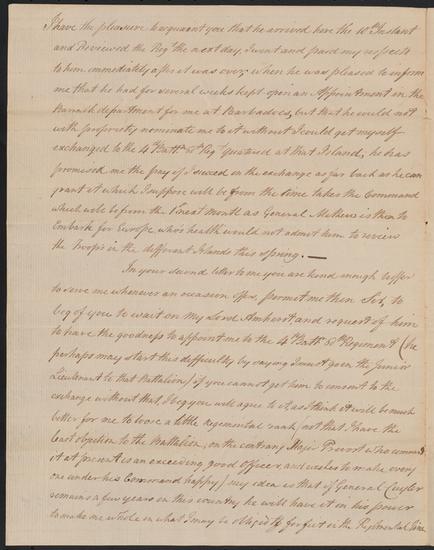 I have the pleasure to acquaint you that he arrived here the 10th Instant
and Reviewed the Regt the next day, I went and paid my respects
to him immediately after it was over, when he was pleased to inform
me that he had for several weeks kept open an Appointment in the
Barrack department for me at Barbadoes, but that he could not
with propriety nominate me to it without I could get myself
exchanged to the 4th Battn 60th Regt Quartered at that Island, he has
promised me the pay of it on the exchange as far back as he can
grant it which I suppose will be from the time takes the Command
which will be from the 1st next month as General Mathew is then to
Embark for Europe, who's health would not admit him to review
the Troops in the different Islands this spring. —
In your second letter to me you are kind enough to offer
to serve me whenever an occasion offers, permit me then Sir, to
beg of you to wait on my Lord Amherst, and request of him
to have the goodness to appoint me to the 4th Battn 60th Regiment (he
perhaps may start this difficulty by saying I must go in the Junior
Lieutenant to that Battalion) if you cannot get him to consent to the
exchange without that, I beg you will agree to it, as I think it will be much
better for me to loose a little regimental rank, not that I have the
least objection to the Battalion, on the contrary Major Prevost who commands
it at present is an exceeding good officer, and wishes to make every
one under his Command happy) my idea is that if General Cuyler
remains a few years in this country he will have it in his power
to make me whole in what I may be oblig'd to forfeit in the Regimental line